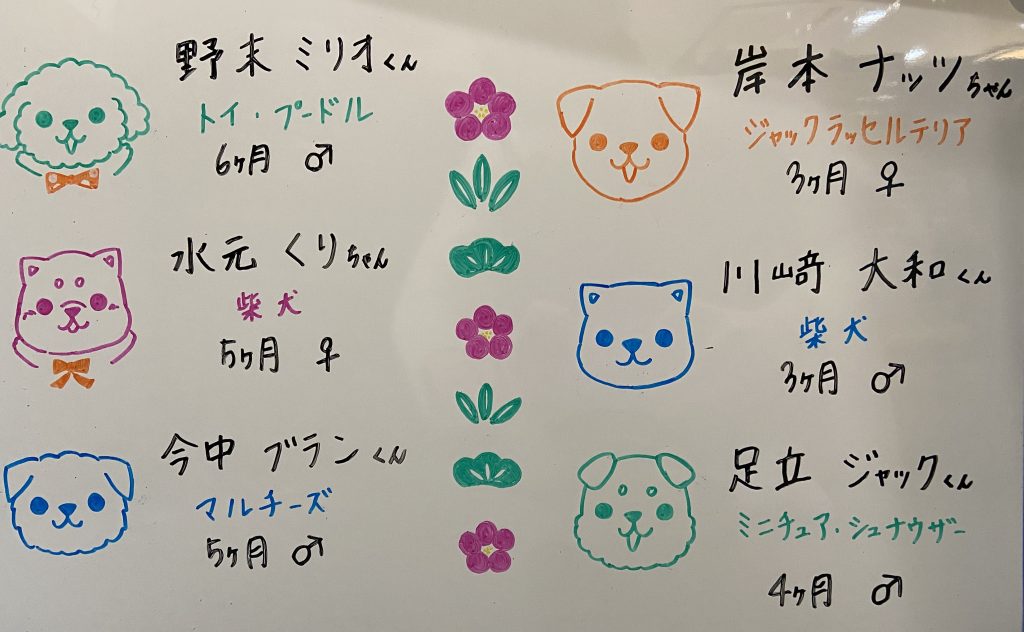 野末 ミリオくん
トイ・プードル
6ヶ月 ♂
岸本 ナッツちゃん
ジャックラッセルテリア
3ヶ月 ♀
水元 くりちゃん
柴犬
5ヶ月 ♀
川﨑 大和くん
柴犬
3ヶ月 ♂
今中 ブランくん
マルチーズ
5ヶ月 ♂
足立 ジャックくん
ミニチュア・シュナウザー
4ヶ月 ♂